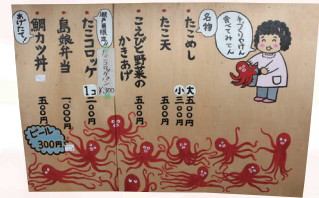 手づくりやけん
食べてみてん
名物
たこめし
大五〇〇円
小三〇〇円
たこ天
五〇〇円
こえびと野菜の
かきあげ
五〇〇円
たこコロッケ
1コ二〇〇円
¥300
島娘弁当
一〇〇〇円
あげたて!
鯛カツ丼
五〇〇円
ビール
300円